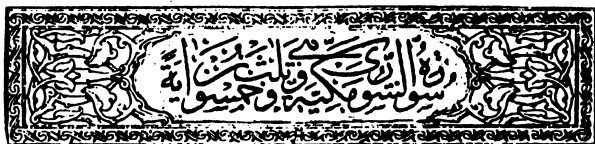 سورة الشورى مكية وهي ثلث وخمسون آية